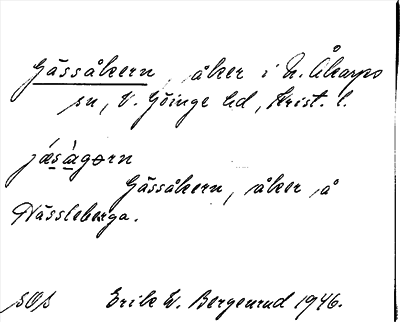 Gässåkern, åker i N. Åkarps
sn, V. Göinge hd, Krist. l.
jæ̀sàgorn
Gässåkern, åker å
Nässleberga.
SOS Erik W. Bergenrud 1946.